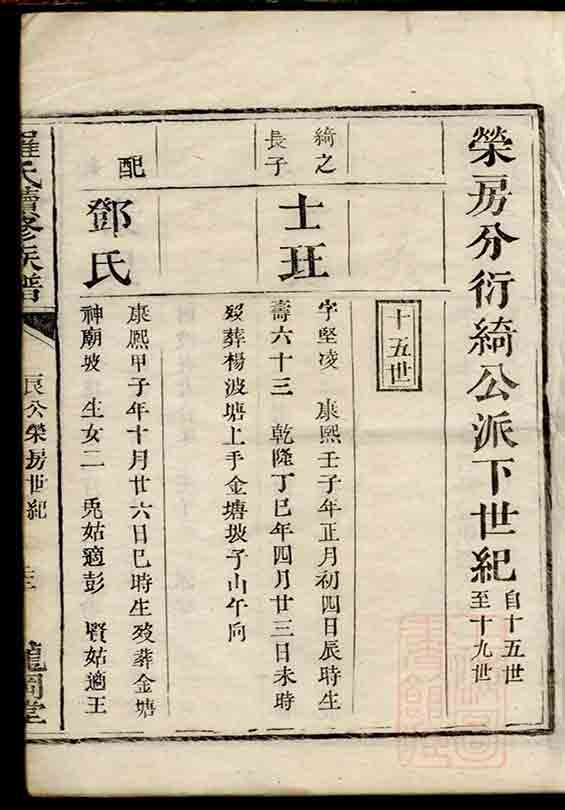 榮房分衍綺公派下世紀
自十五世
至十九世
十五世
綺之
長子
士玨
字堅凌 康熙壬子年正月初四日辰時生
壽六十三 乾隆丁巳年四月廿三日未時
歿葬楊波塘上手金塘坡子山午向
配
鄧氏
康熙甲子年十月廿六日巳時生歿葬金塘
神廟坡 生女二 兎姑適彭 賢姑適王
羅氏續修族譜
良公榮房世紀
龍岡堂